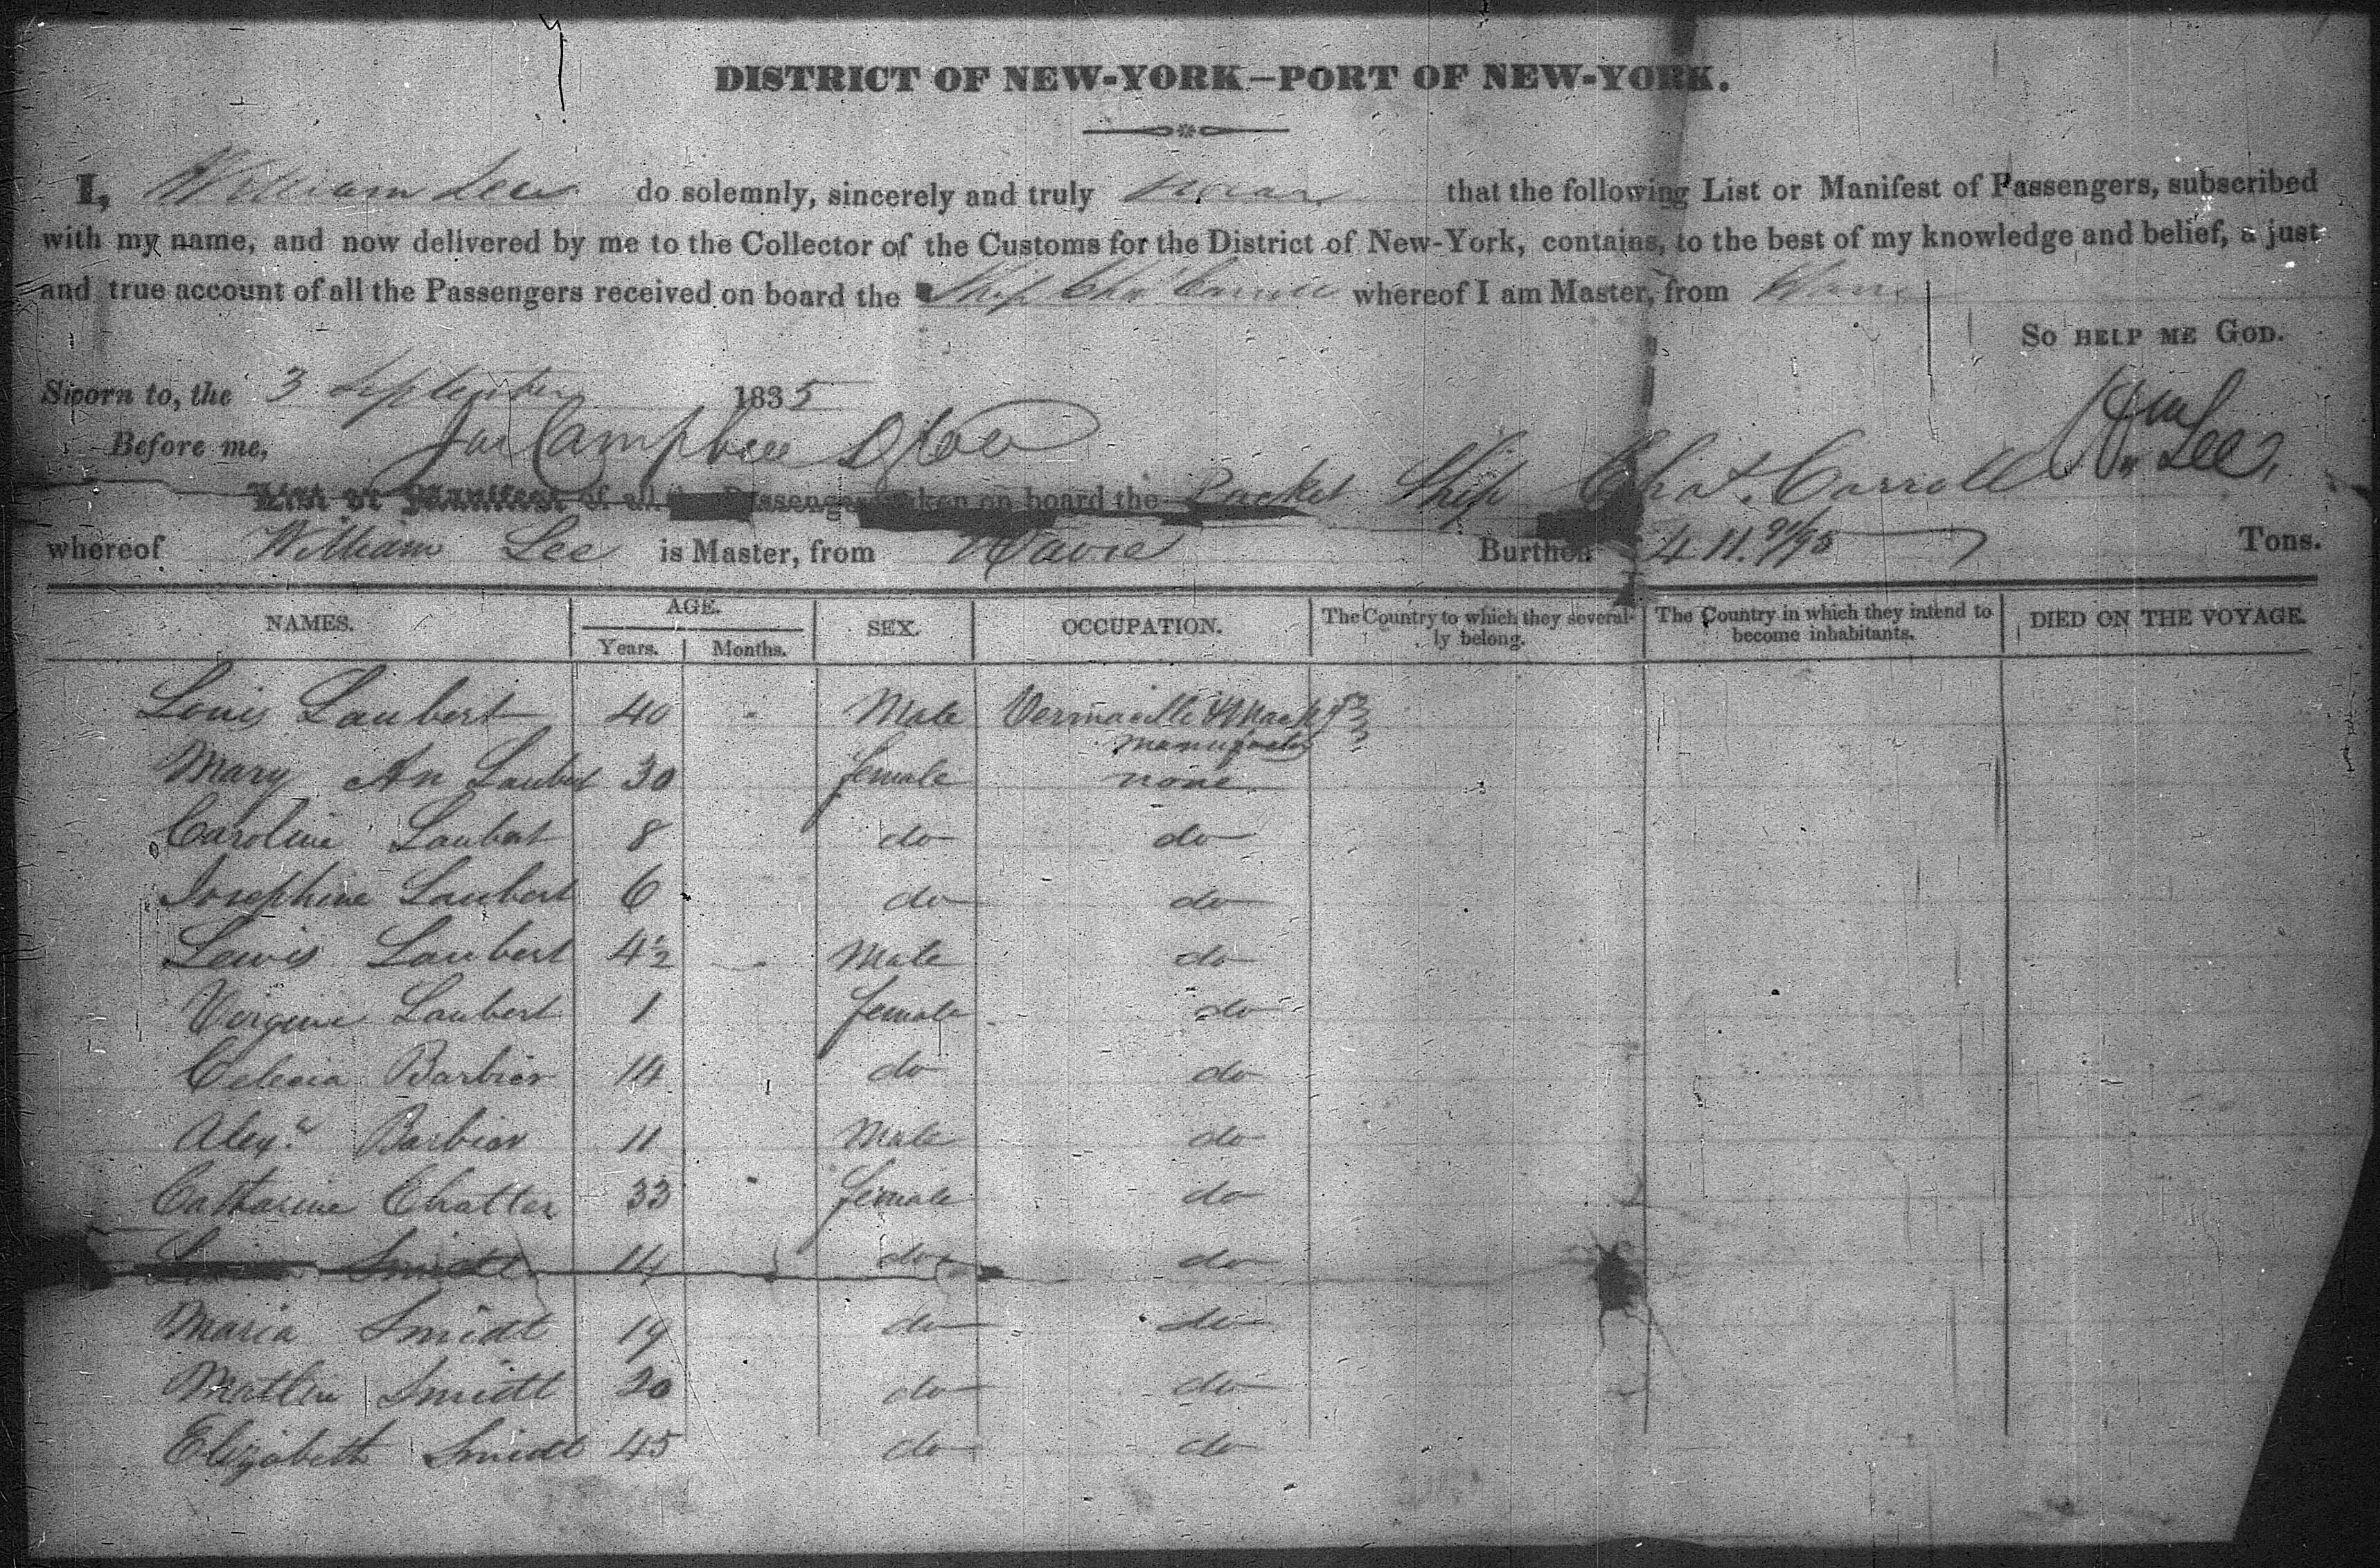 DISTRICT OF NEW-YORK—PORT OF NEW-YORK.
I, William Lee do solemnly, sincerely and truly swear that the following List or Manifest of Passengers, subscribed
with my name, and now delivered by me to the Collector of the Customs for the District of New-York, contains, to the best of my knowledge and belief, a just
and true account of all the Passengers received on board the Ship Chs Carroll whereof I am Master, from Havre
So HELP ME GOD.
Sworn to, the 3 September 1835
Wm Lee
Before me, Jas Campbell
List or Manifest of all the Passengers taken on board the Packet Ship Chas. Carroll
whereof William Lee is Master, from Havre Burthen 411. 91/95 Tons.
NAMES. AGE. SEX. OCCUPATION. The Country to which they several- The Country in which they intend to DIED ON THE VOYAGE.
Years. Months. ly belong. become inhabitants.
Louis Laubert 40 Male Vermacille
manufactor
Mary An Laubert 30 female none
Caroline Laubert 8 do do
Josephine Laubert 6 do do
Lewis Laubert 4½ Male do
Virgene Laubert 1 female do
Celecia Barbier 14 do do
Alexr Barbier 11 Male do
Catharine Chatter 33 female do
Smidt 14 do do
Maria Smidt 19 do do
Smidt 20 do do
Elizabeth Smidt 45 do do